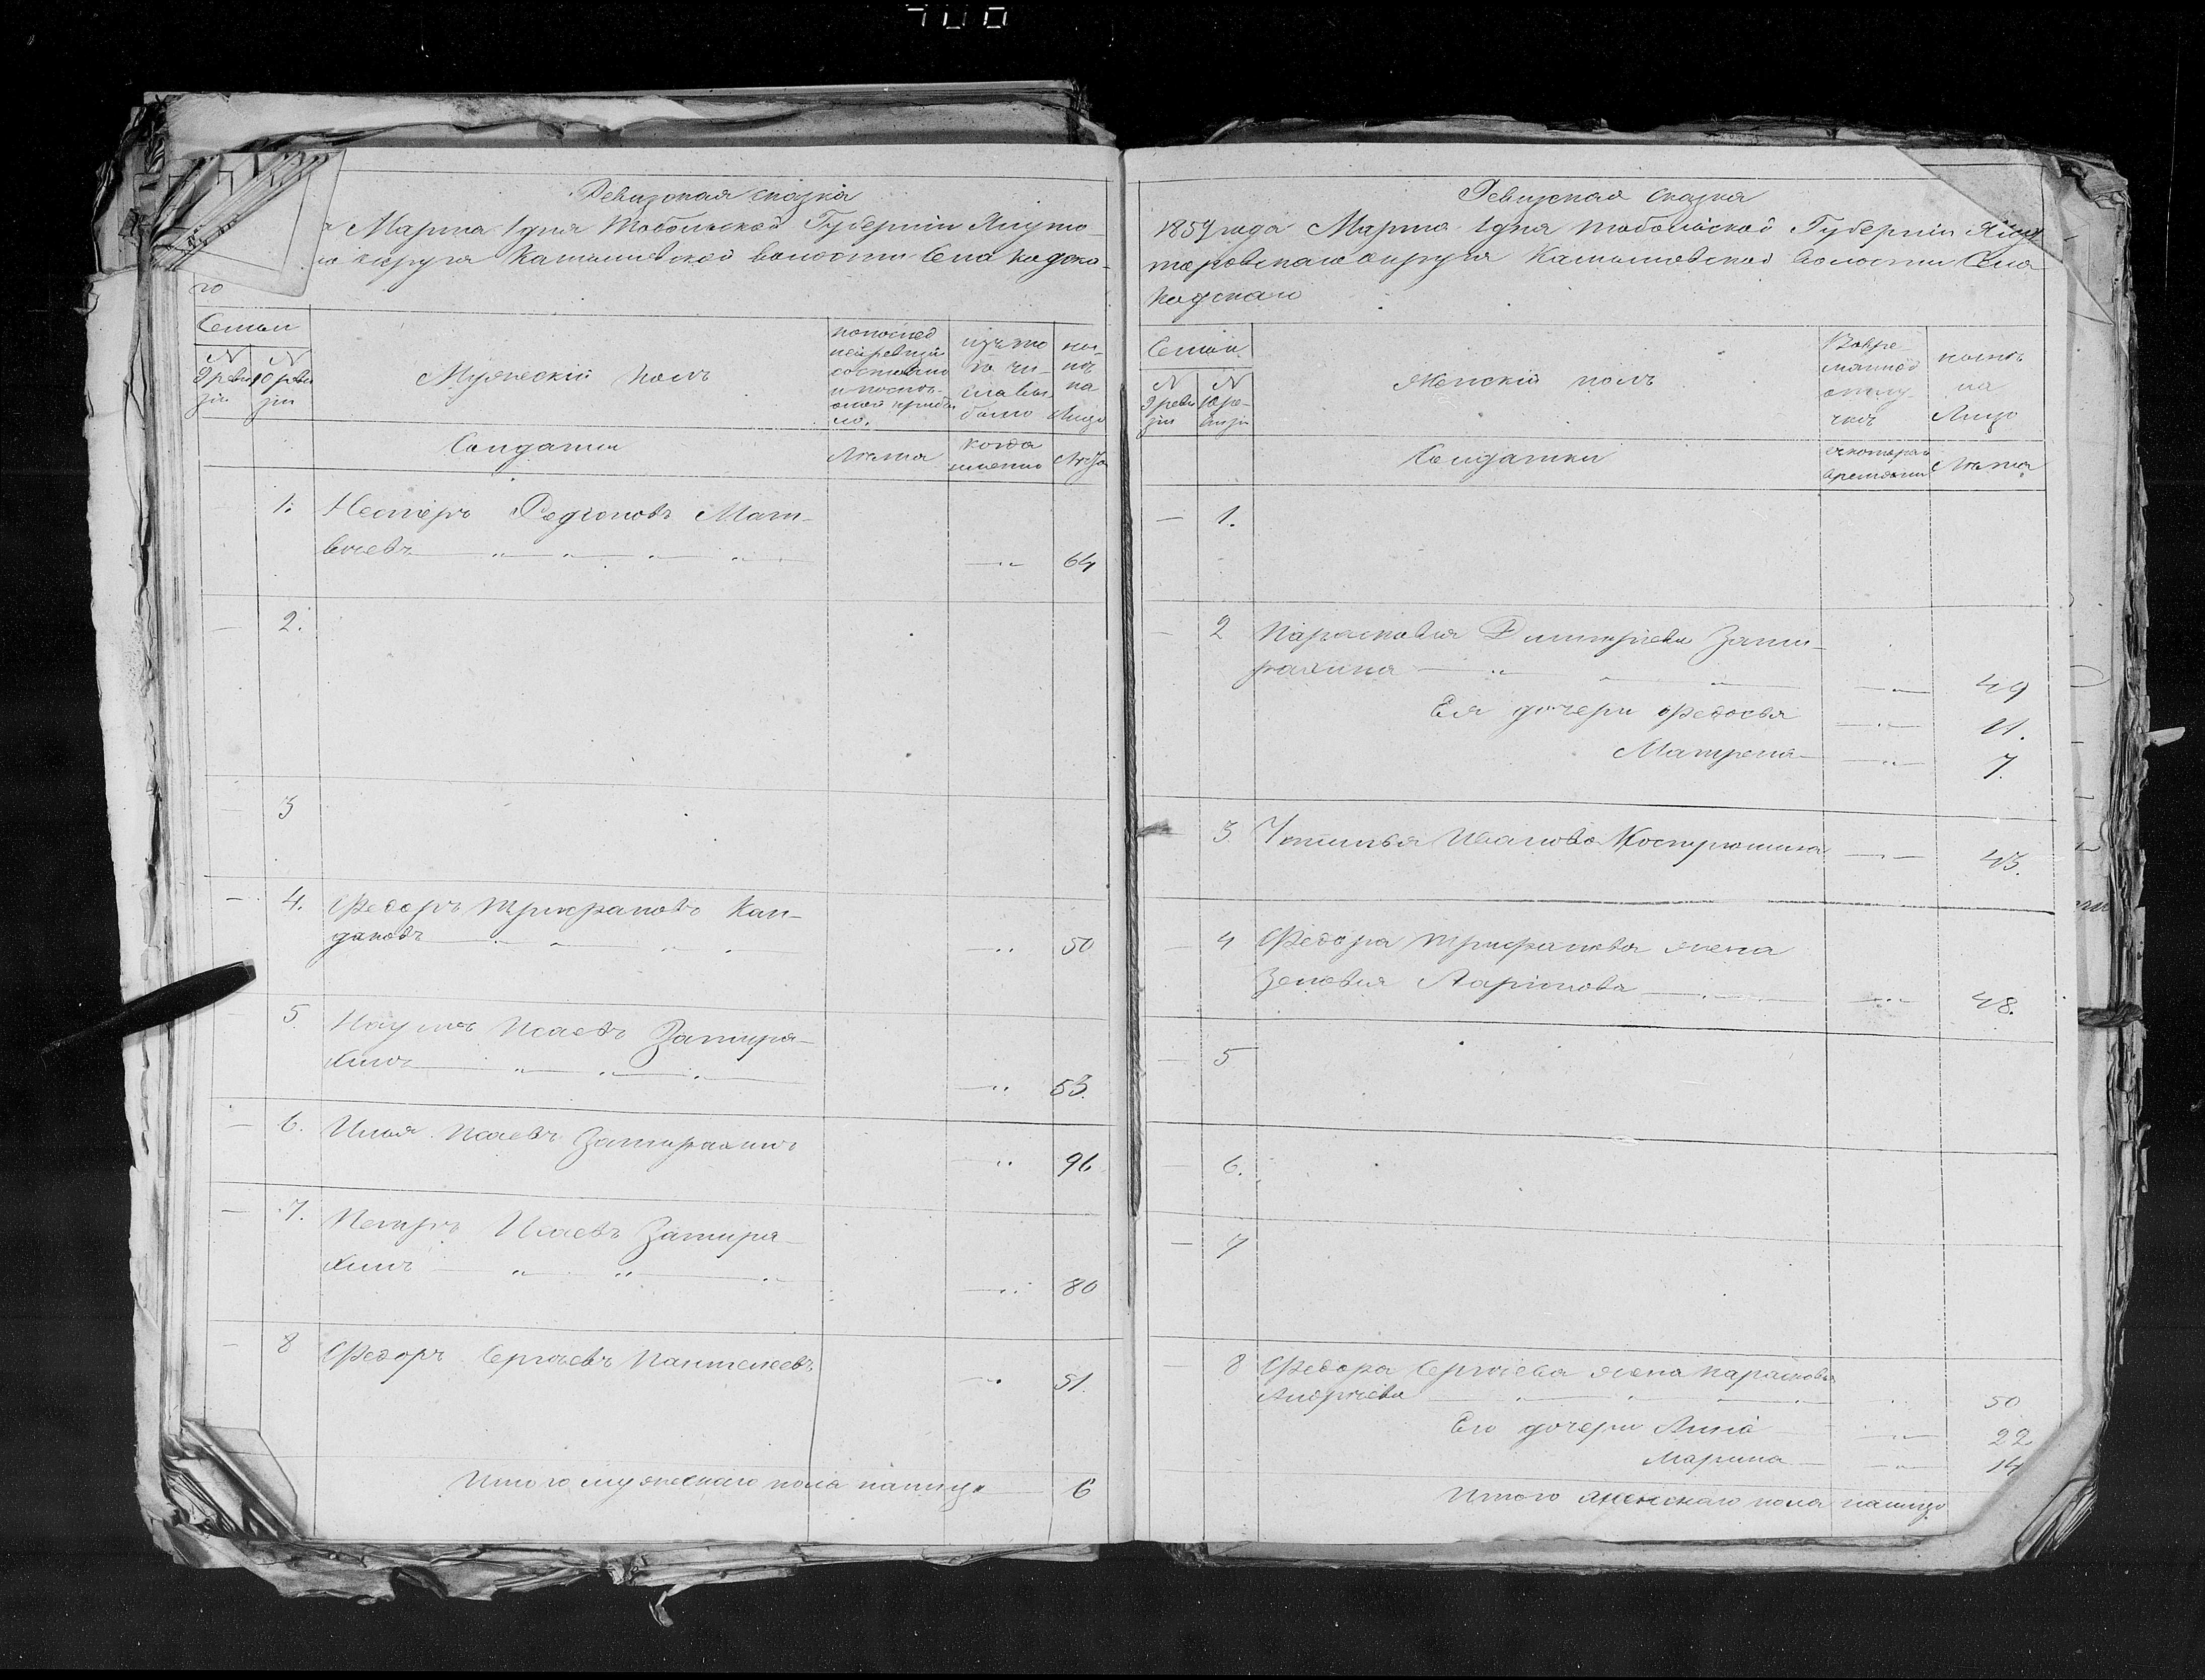 700
Ревизская сказка
Марта 1 дня Тобольской Губернии Ялуто-
округа Камышевской волости Села Кодска-
го
Семьи
N 9 ревизіи
N 10 ревизіи
Мужескій полъ
по послед
ней ревизіи
состояло
и после
оной прибы
ло.
изъ то
го чи-
сла вы
было
ны-
нѣ
на
лицо
Солдаты
Лѣта
когда
именно
Лѣта
1. Нестеръ Родіоновъ Мат-
веевъ 64
2.
3
4. Федоръ Трифановъ Кан-
даковъ 50
5. Наумъ Исаевъ Затира-
хинъ 53.
6. Илья Исаевъ Затирахинъ 96
7. Петръ Исаевъ Затира-
хинъ 80
8 Федоръ Сергѣевъ Пантелеевъ 51.
Итого мужескаго пола налицо 6
Ревизская сказка
1857 года Марта 1 дня Тобольской Губерніи Ялу
торовскаго округа Камышевской волости Села
Кодскаго
Семьи
N 9 ревизіи
N 10 ревизіи
Женскій полъ
Вовре-
манной
отлу-
чкѣ
нынѣ
на
Лицо
Солдатки
съ котораго
времени
Лѣта
1.
2 Парасковья Дмитріева Зати-
рахина 49
Ея дочери Федосья 11.
Матрена 7.
3. Устинья Иванова Кострюшина 43.
4 Федора Трифанова жена
Зеновья Ларіонова 48.
5
6.
7
8 Федора Сергѣева жена Парасковья
Андреева 50
Его дочери Анна 22
Марина 14
Итого женскаго пола налицо